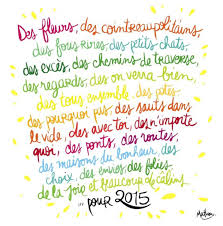 Des fleurs, des cointreaupolitains,
des fous rires, des petits chats,
des excès, des chemins de traverse,
des regards, des on verra-bien,
des tous ensemble, des potes,
des pourquoi pas, des sauts dans
le vide, des avec toi, des n'importe
quoi, des ponts, des routes,
des maisons du bonheur, des
choix, des envies, des folies
de la joie et beaucoup de câlins
... pour 2015